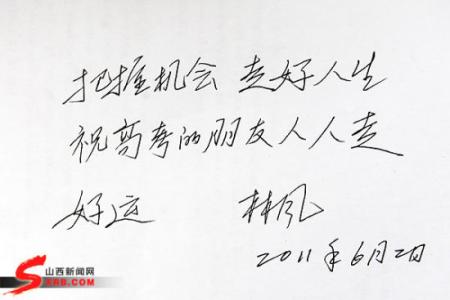 把握机会 走好人生
祝高考的朋友人人走
好运 林风
2011年6月2日
山西新闻网
SXRB.COM